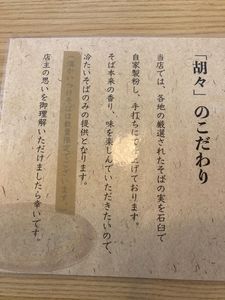 「胡々」のこだわり
当店では、各地の厳選されたそばの実を石臼で
自家製粉し、手打ちにて仕上げております。
そば本来の香り、味を楽しんでいただきたいので、
冷たいそばのみの提供となります。
店主の思いを御理解いただけましたら幸いです。